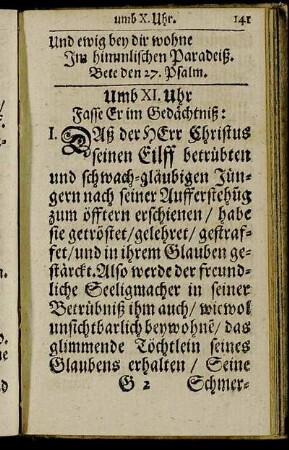 umb X. Uhr. 141
Und ewig bey dir wohne
Im himmlischen Paradeiß.
Bete den 27. Psalm.
Umb XI. Uhr
Fasse Er im Gedächtniß:
I. DAß der HErr Christus
seinen Eilff betrübten
und schwach-gläubigen Jün-
gern nach seiner Aufferstehũg
zum öfftern erschienen / habe
sie getröstet/gelehret/ gestraf-
fet/und in ihrem Glauben ge-
stärckt. Also werde der freund-
liche Seeligmacher in seiner
Betrübniß ihm auch/ wiewol
unsichtbarlich beywohnẽ/ das
glimmende Töchtlein seines
Glaubens erhalten / Seine
G 2 Schmer-